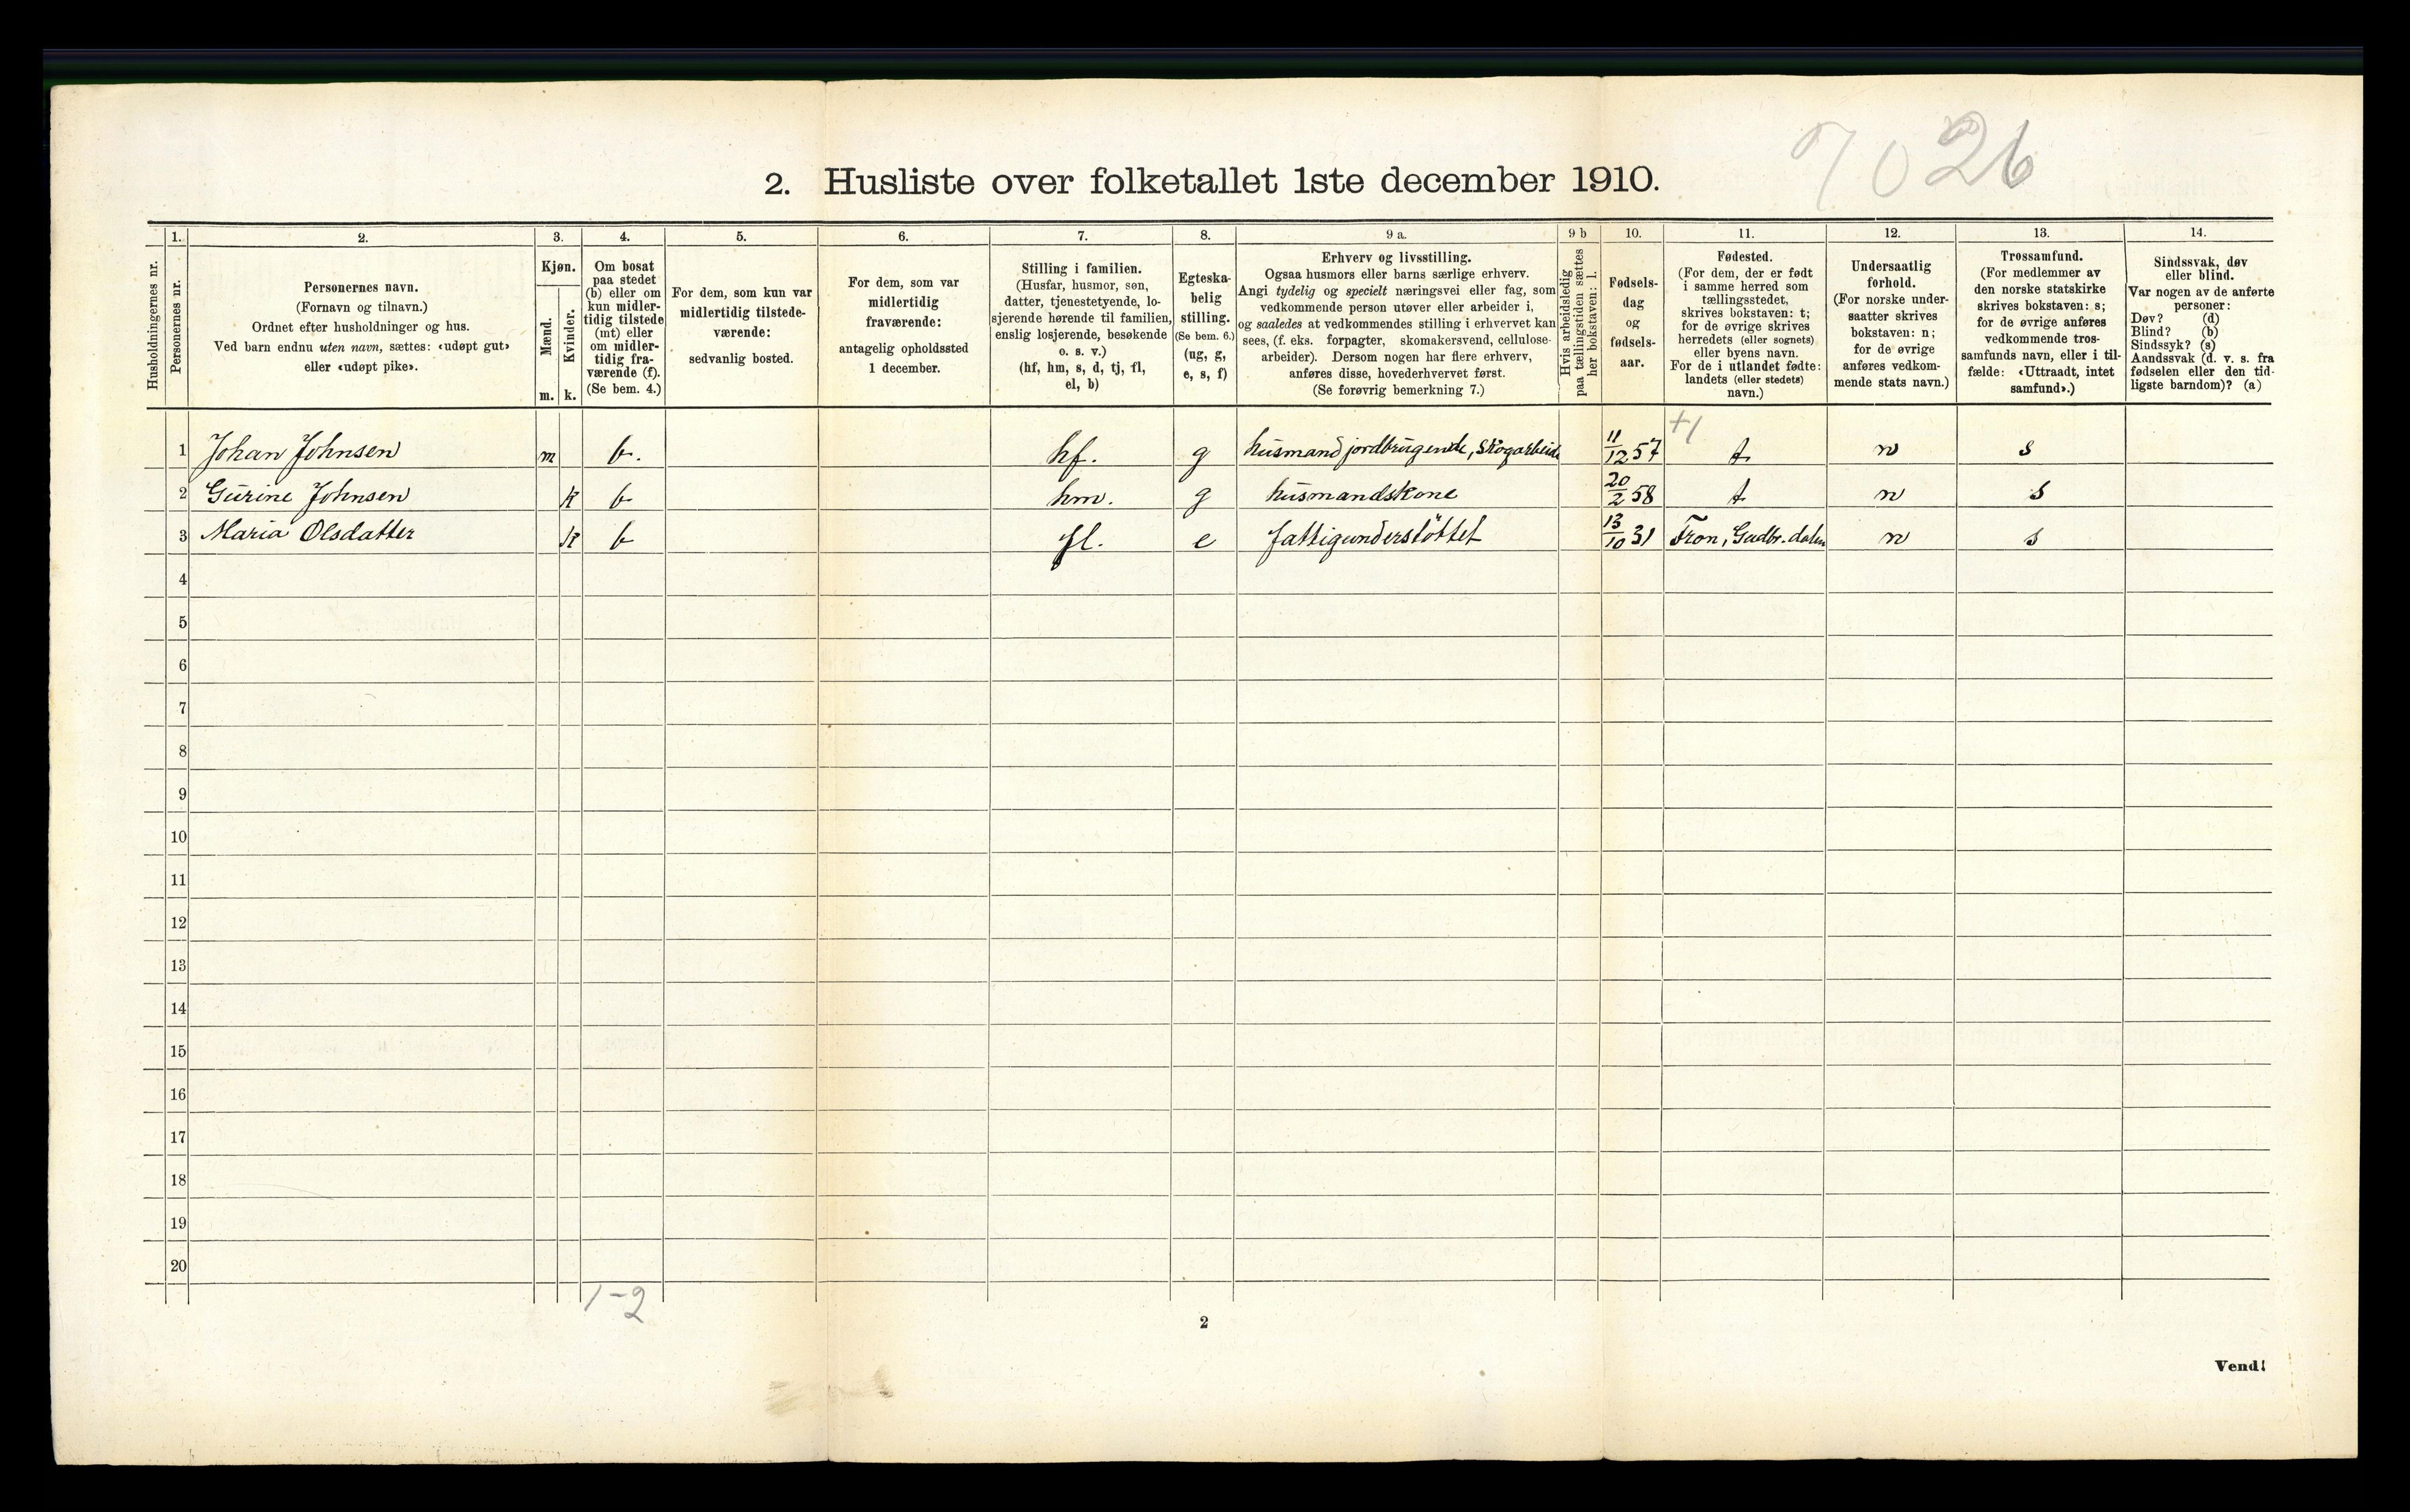 7026
2. Husliste over folketallet 1ste december 1910.
Husholdningernes nr.
1.
Personernes nr.
2.
Personernes navn.
(Fornavn og tilnavn.)
Ordnet efter husholdninger og hus.
Ved barn endnu uten navn, sættes: «udøpt gut»
eller «udøpt pike».
3.
Kjøn.
Mænd.
Kvinder.
m. k.
4.
Om bosat
paa stedet
(b) eller om
kun midler-
tidig tilstede
(mt) eller
om midler-
tidig fra-
værende (f).
(Se bem. 4.)
5.
For dem, som kun var
midlertidig tilstede-
værende:
sedvanlig bosted.
6.
For dem, som var
midlertidig
fraværende:
antagelig opholdssted
1 december.
7.
Stilling i familien.
(Husfar, husmor, søn,
datter, tjenestetyende, lo-
sjerende hørende til familien,
enslig losjerende, besøkende
o. s. v.)
(hf, hm, s, d, tj, fl,
el, b)
8.
Egteska-
belig
stilling.
(Se bem. 6.)
(ug, g,
e, s, f)
9 a.
Erhverv og livsstilling.
Ogsaa husmors eller barns særlige erhverv.
Angi tydelig og specielt næringsvei eller fag, som
vedkommende person utøver eller arbeider i,
og saaledes at vedkommendes stilling i erhvervet kan
sees, (f. eks. forpagter, skomakersvend, cellulose-
arbeider). Dersom nogen har flere erhverv,
anføres disse, hovederhvervet først.
(Se forøvrig bemerkning 7.)
9 b
Hvis arbeidsledig
paa tællingstiden sættes
her bokstaven: l.
10.
Fødsels-
dag
og
fødsels-
aar.
11.
Fødested.
(For dem, der er født
i samme herred som
tællingsstedet,
skrives bokstaven: t;
for de øvrige skrives
herredets (eller sognets)
eller byens navn.
For de i utlandet fødte:
landets (eller stedets)
navn.)
12.
Undersaatlig
forhold.
(For norske under-
saatter skrives
bokstaven: n;
for de øvrige
anføres vedkom-
mende stats navn.)
13.
Trossamfund.
(For medlemmer av
den norske statskirke
skrives bokstaven: s;
for de øvrige anføres
vedkommende tros-
samfunds navn, eller i til-
fælde: «Uttraadt, intet
samfund».)
14.
Sindssvak, døv
eller blind.
Var nogen av de anførte
personer:
Døv? (d)
Blind? (b)
Sindssyk? (s)
Aandssvak (d. v. s. fra
fødselen eller den tid-
ligste barndom)? (a)
+1
1 Johan Johnsen m b. hf. g husmand jordbrugende, Skogarbeide 11/12 57 t n s
2 Gurine Johnsen k b hm. g husmandskone 20/2 58 t n s
3 Maria Olsdatter k b fl. e fattigunderstöttet 13/10 31 Fron, Gudbr.dalen n s
4
5
6
7
8
9
10
11
12
13
14
15
16
17
18
19
20
1-2
2
Vend!